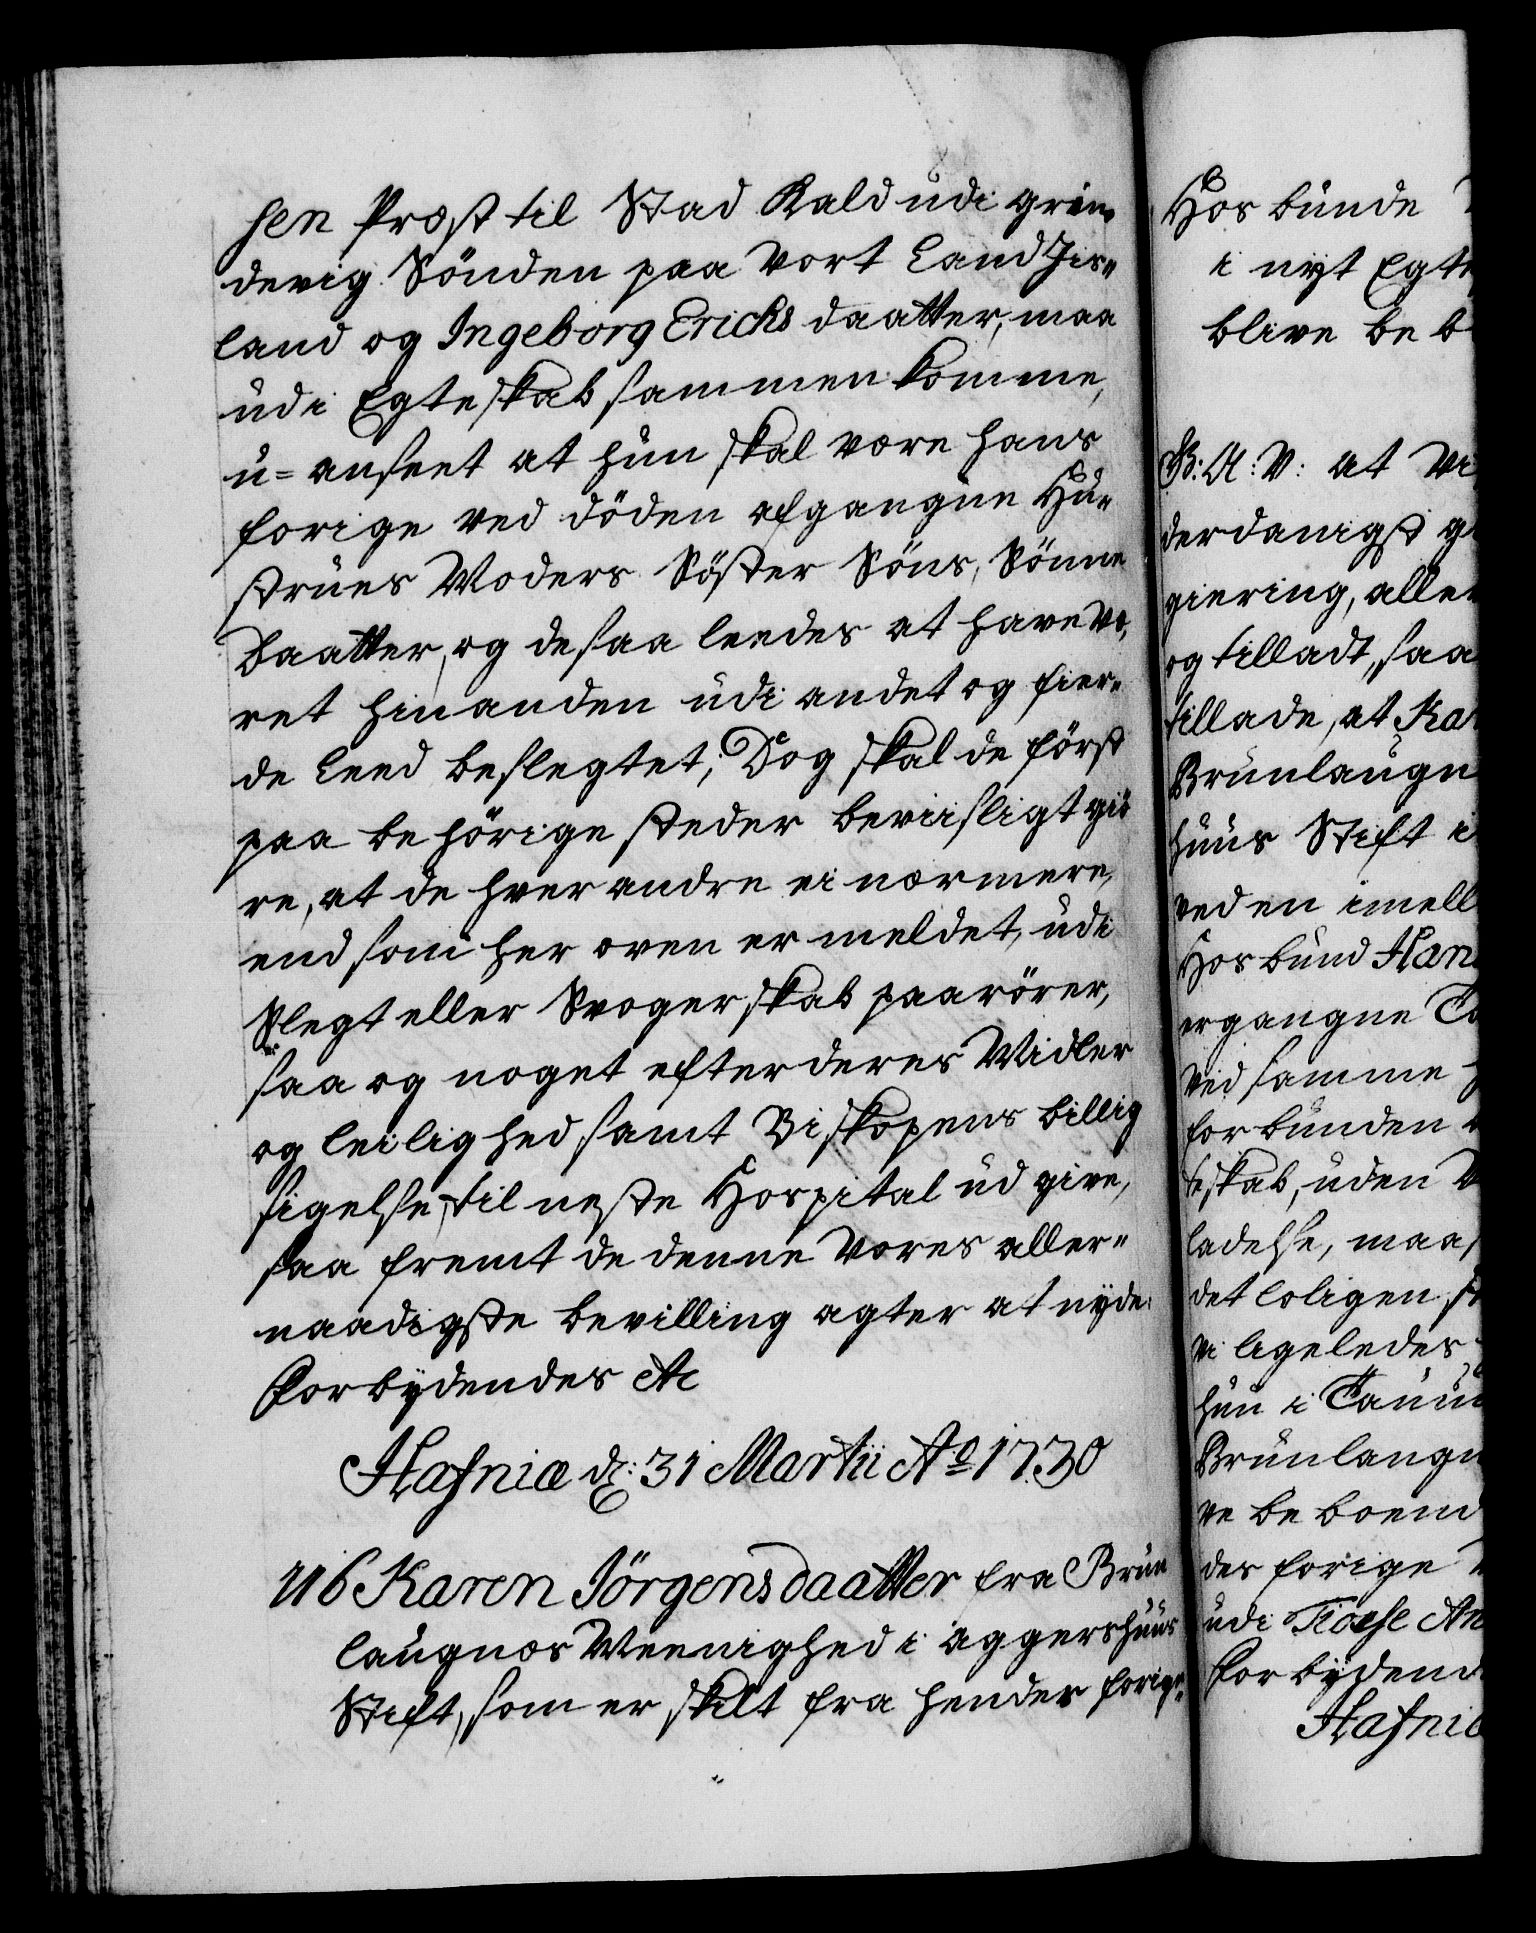 sen Præst til Stad Kald udi grin„
devig Sönden paa vort Land Jis„
land og Ingeborg Erichs daatter, maa
udi Egteskab sammen komme,
u=anseet at hun skal være hans
forige ved döden afgangne Hu„
strues Moders Söster Söns, Sönne
Daatter, og de saaleedes at have væ„
ret hinanden udi andet og fier„
de Leed beslegtet; Dog skal de först
paa behörige steder beviisligt giö
re, at de hver andre ei nærmere,
end som her oven er meldet, udi
Slegt eller Svogerskab paarörer,
saa og noget efter deres Midler
og leilighed samt Biskopens billig
sigelse, til neste Hospital ud give,
saa fremt de denne Vores aller„
naadigste bevilling agter at nyde.
Forbydendes &c
Hafniæ d: 31 Martii Aº 1730
116 Karen Jörgens daatter fra Brun
laugnæs Meenighed i Aggershuus
Stift, som er skilt fra hendes forige„
Hosbunde
i nyt Egte
blive be b
G: A: V: at vi
derdanigst
giering, aller
og tilladt, saa
tillade, at Kar
Brunlaugn
huus Stift i
ved en imell
Hosbund Han
ergangne
ved samme
forbunden
teskab, uden
ladelse, maa
det loligen
vi ligeledes
hun i
Brunlaugn
ve be boend
des forige
udi An
Forbydend
Hafniæ